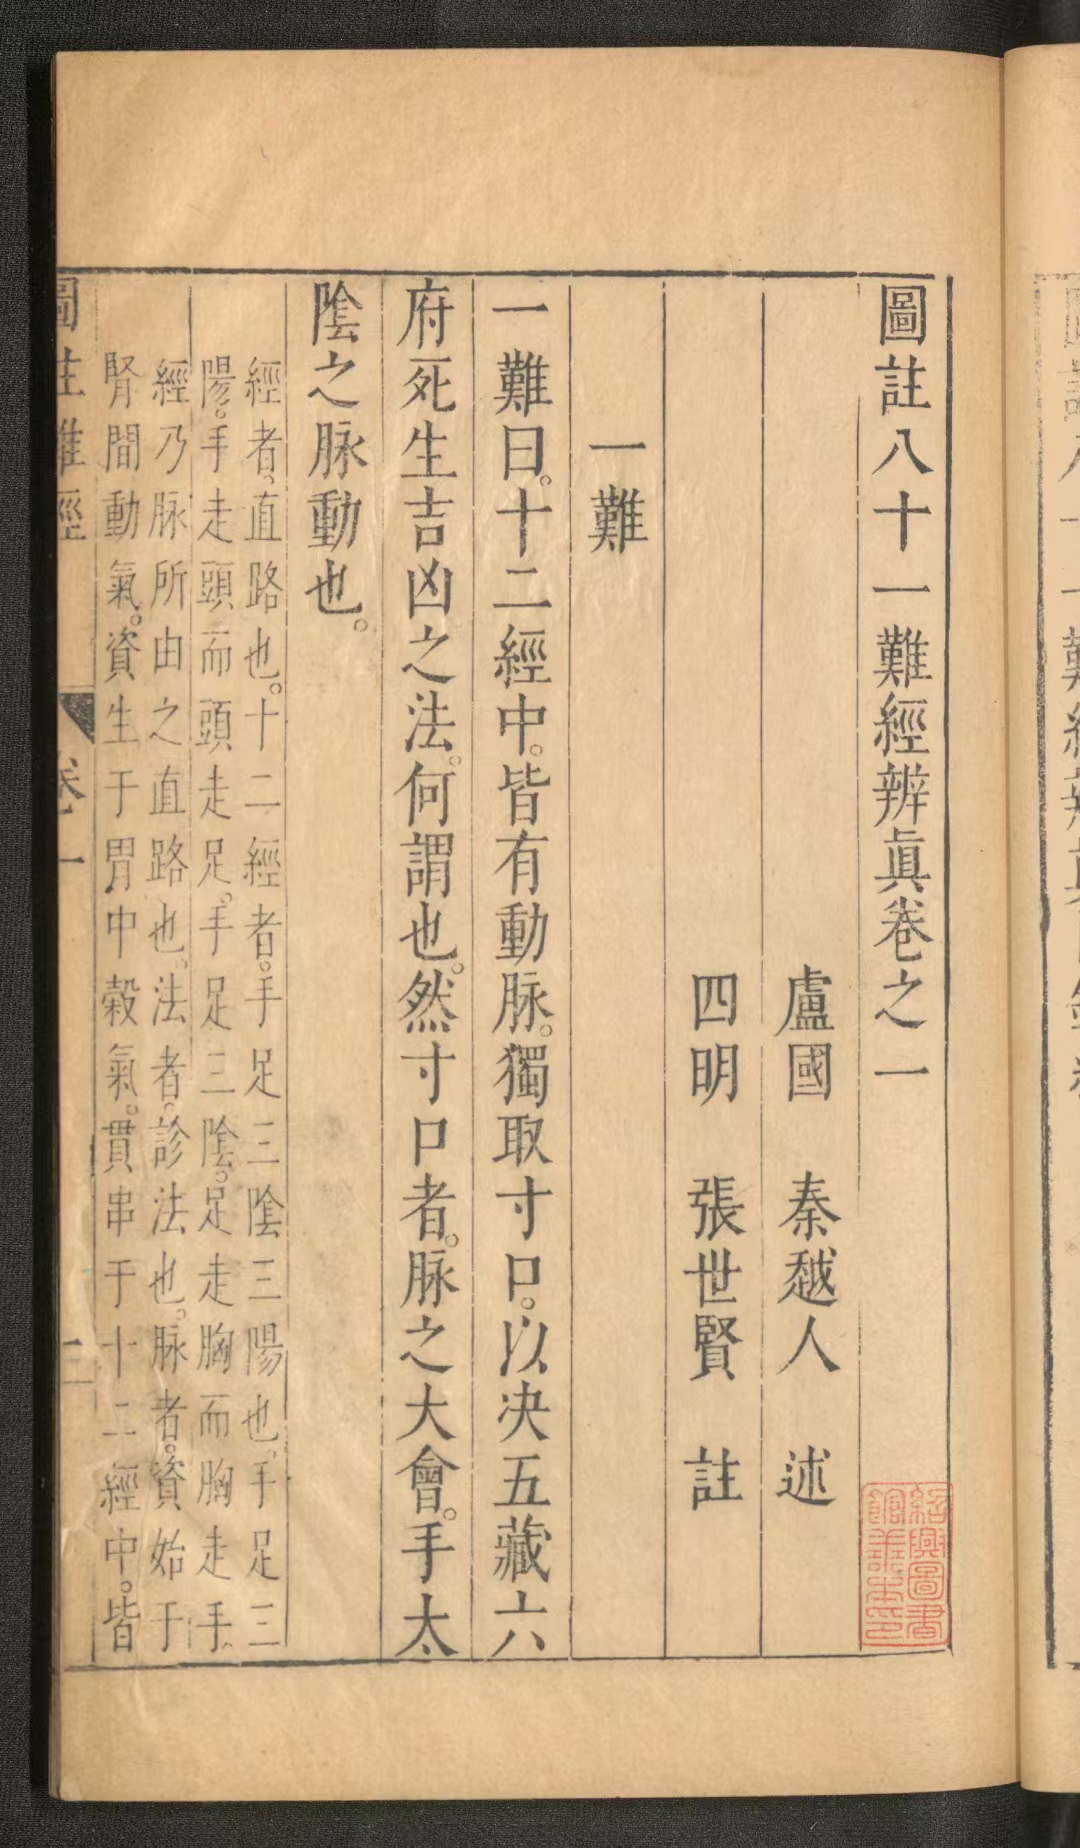 圖註八十一難經辨眞卷之一
盧國 秦越人 述
四明 張世賢 註
一難
一難曰。十二經中。皆有動脉。獨取寸口。以决五藏六
府死生吉凶之法。何謂也。然寸口者。脉之大會。手太
陰之脉動也。
經者。直路也。十二經者。手足三陰三陽也。手足三
陽。手走頭而頭走足。手足三陰。足走胸而胸走手。
經乃脉所由之直路也。法者。診法也。脉者。資始于
腎間動氣。資生于胃中榖氣。貫串于十二經中。皆
圖註難經 卷一 二
紹興圖書
館善本印